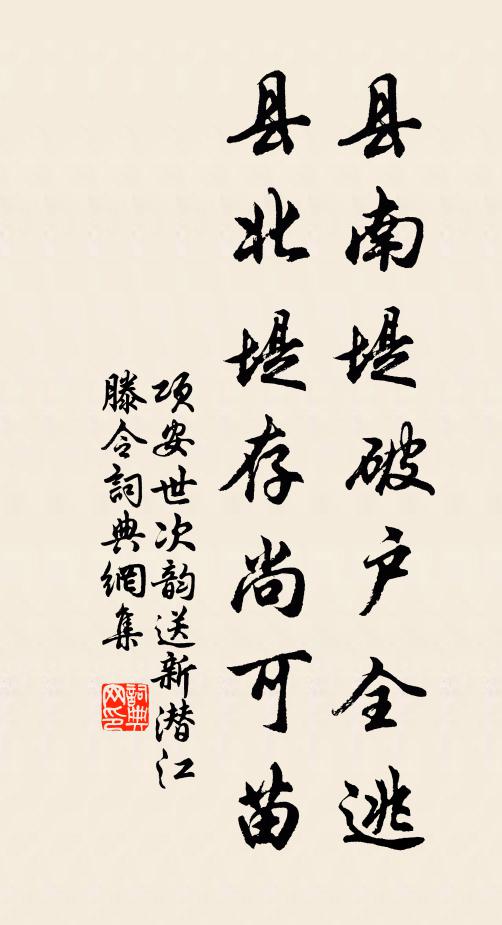 县南堤破户全逃
县北堤存尚可苗
项安世次韵送新潜江
滕令詞典網集
詞典网印